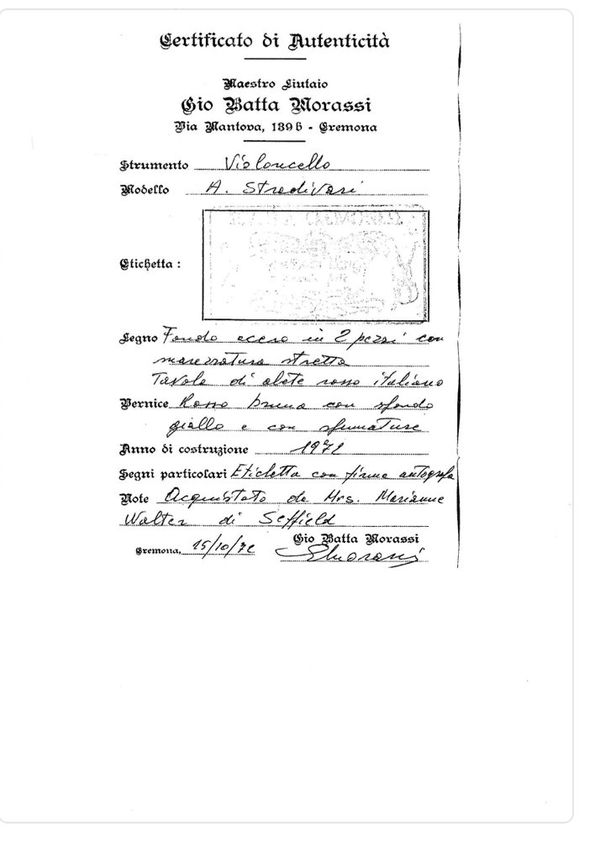 Certificato di Autenticità
Maestro Liutaio
Gio Batta Morassi
Via Mantova, 139 - Cremona
Strumento Violoncello
Modello A. Stradivari
Etichetta :
Legno Fondo acero in 2 pezzi con
marezzatura stretta
Tavola di abete rosso italiano
Vernice Rosso bruna con sfondo
giallo e con sfumature
Anno di costruzione 1972
Segni particolari Etichetta con firma autografa
Note Acquistato da Mrs. Marianne
Walter di Seffield
Gio Batta Morassi
Cremona, 15/10/72